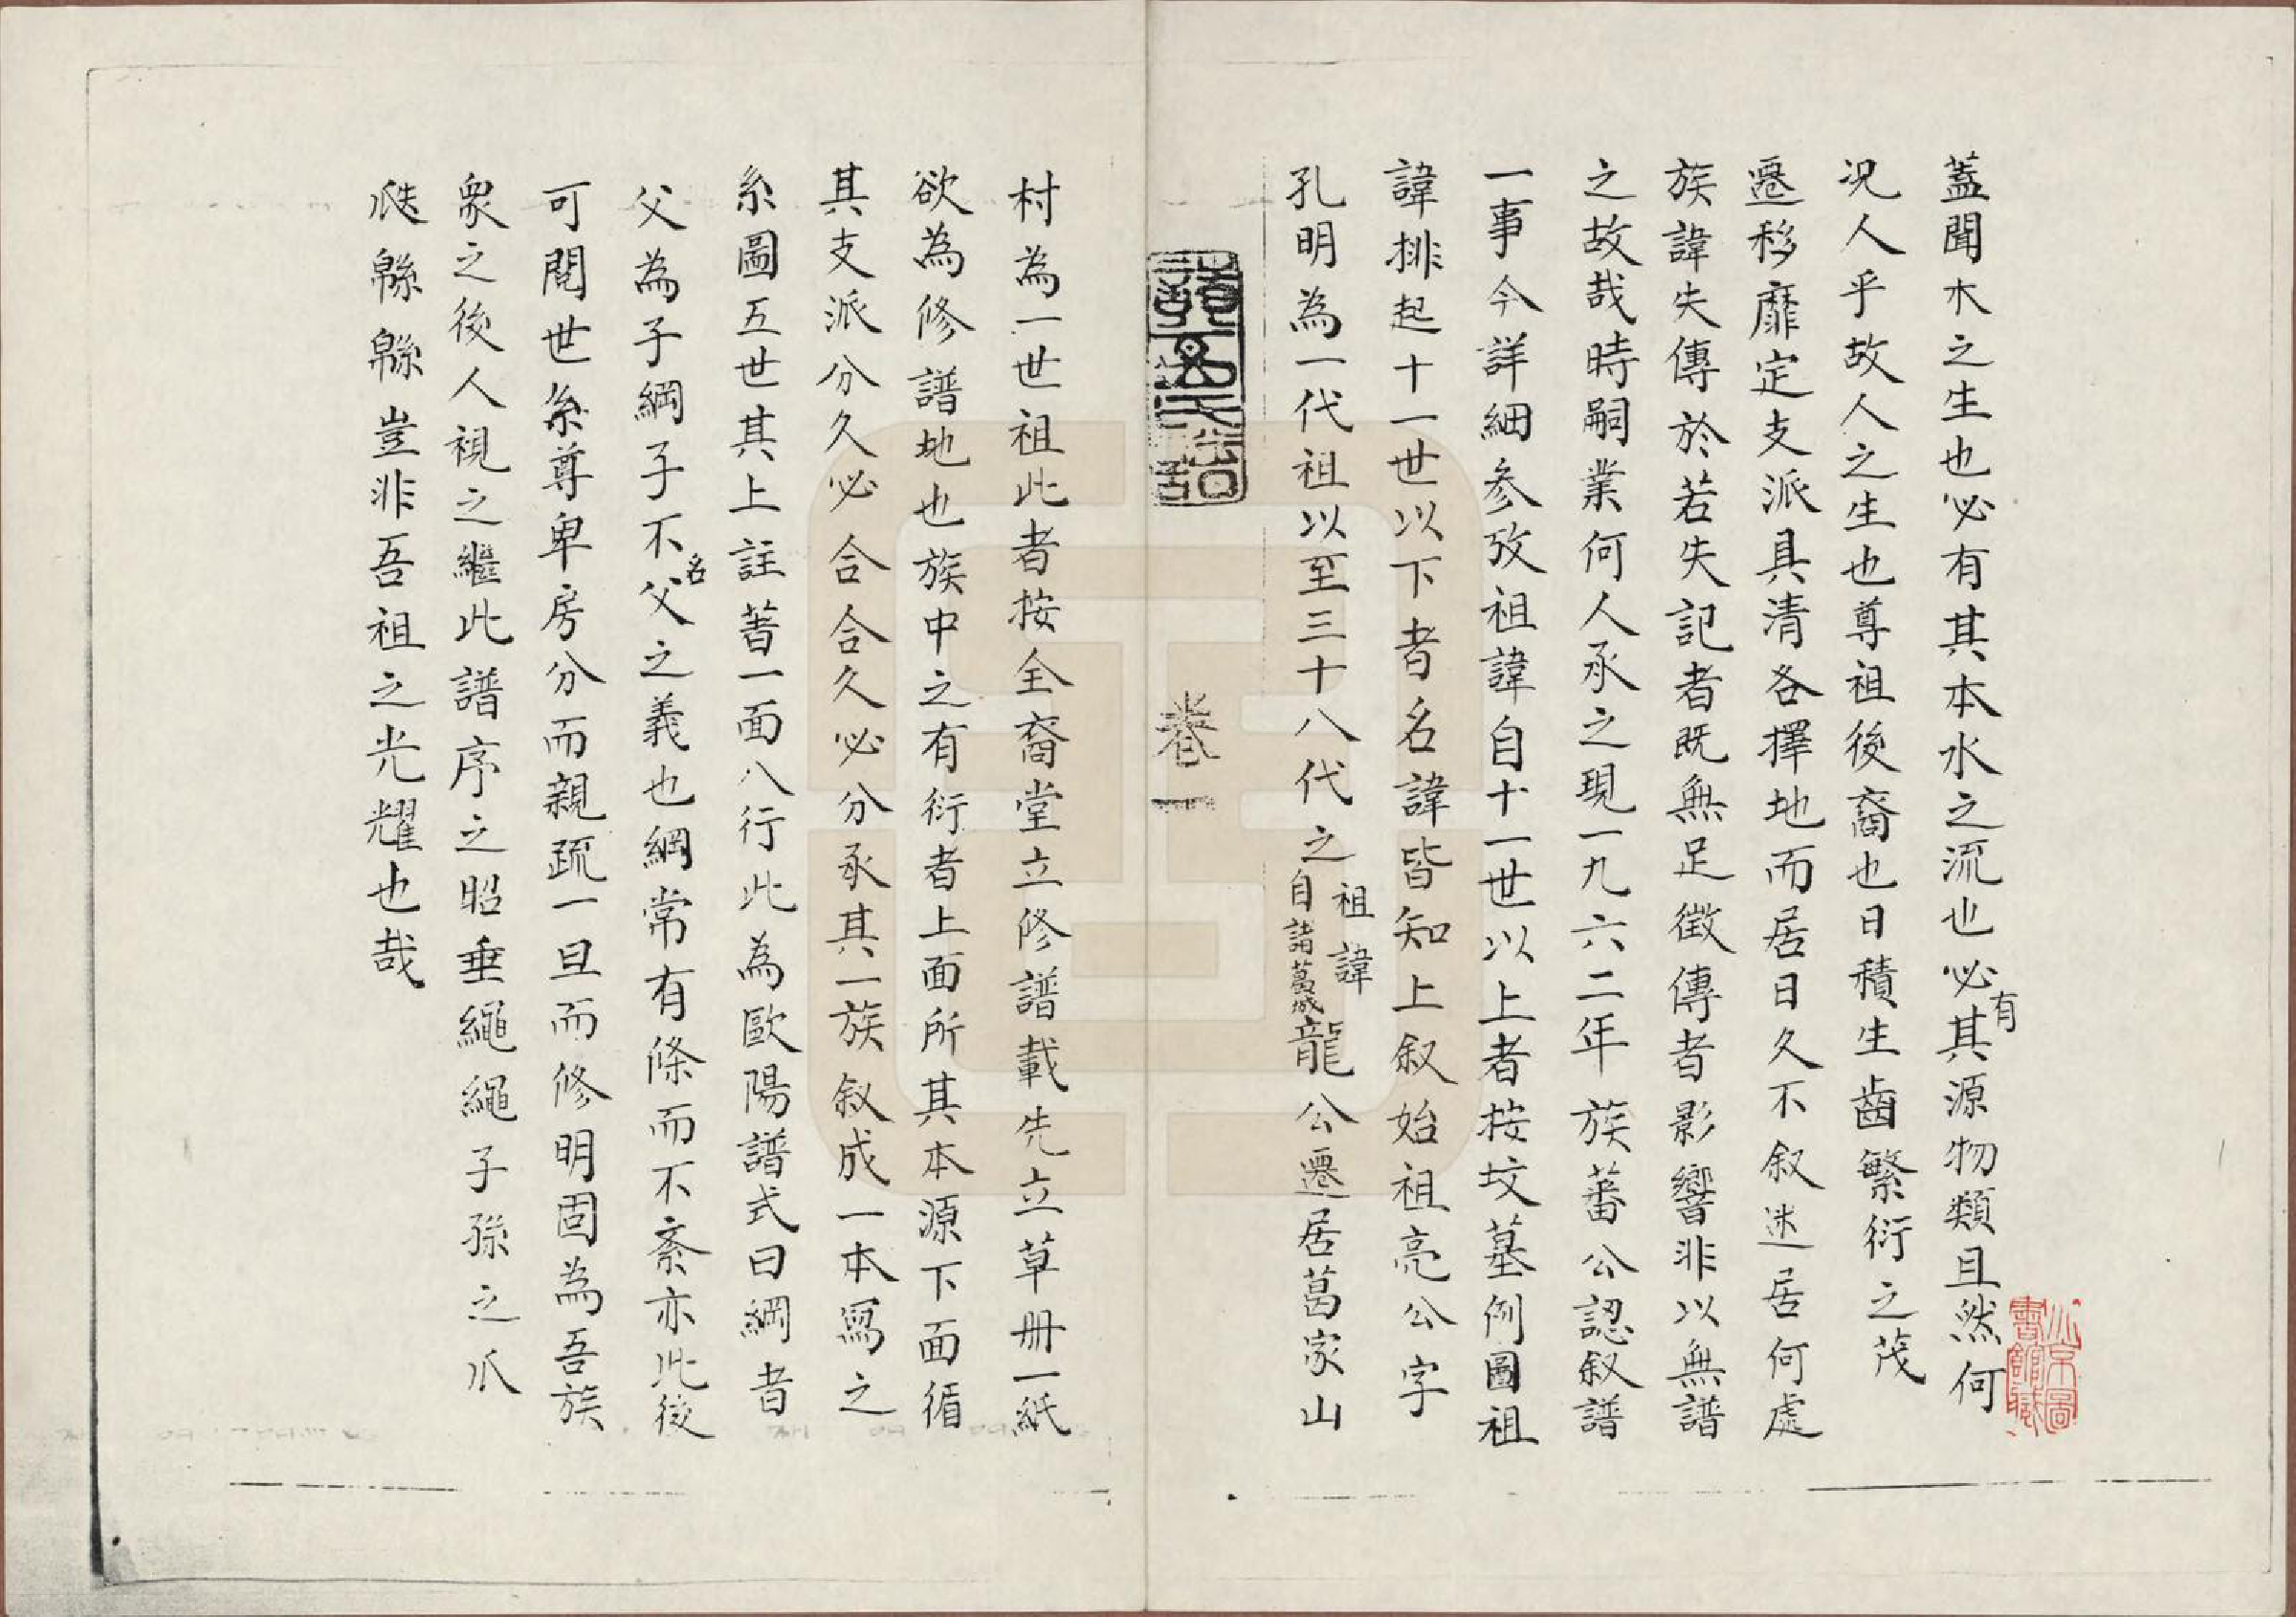 蓋聞木之生也必有其本水之流也必有其源物類且然何
況人乎故人之生也尊祖後裔也日積生齒繁衍之茂
遷移靡定支派具清各擇地而居日久不叙迷居何處
族諱失傳於若失記者既無足徵傳者影響非以無譜
之故哉時嗣業何人承之現一九六二年族蕃公認叙譜
一事今詳細參攷祖諱自十一世以上者按坟墓例圖祖
諱排起十一世以下者名諱皆知上叙始祖亮公字
孔明為一代祖以至三十八代之祖諱自諸葛城龍公遷居葛家山
卷一
村為一世祖此者按全裔堂立修譜載先立草冊一紙
欲為修譜地也族中之有衍者上面所其本源下面循
其支派分久必合合久必分承其一族叙成一本寫之
糸圖五世其上註著一面八行此為歐陽譜式曰綱者
父為子綱子不名父之義也綱常有條而不紊亦此後
可閱世糸尊卑房分而親疏一旦而修明固為吾族
衆之後人視之繼此譜序之昭垂繩繩子孫之爪
瓞緜緜豈非吾祖之光耀也哉
北京圖
書館藏